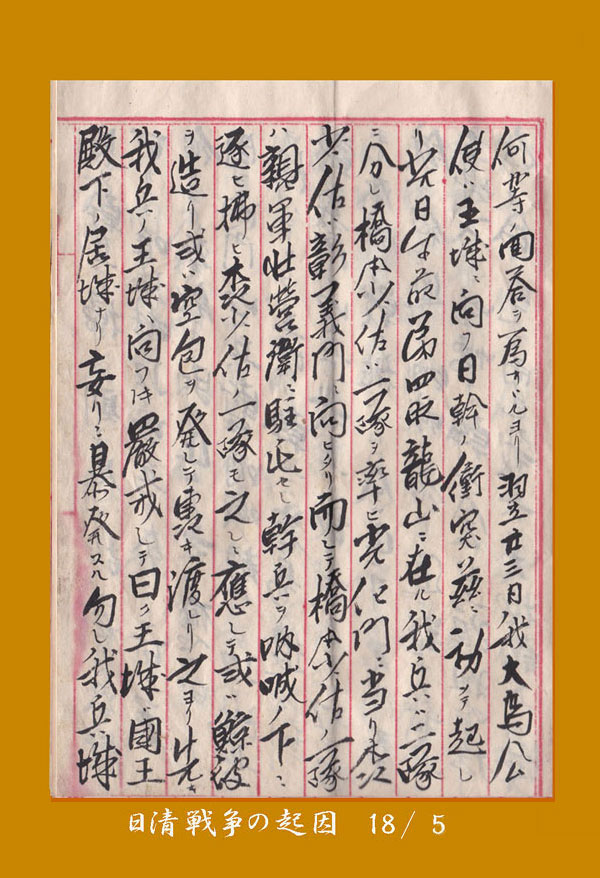 何等ノ回答ヲ為サヾルヨリ翌廿三日我大鳥公
使ハ王城ニ向フ日幹ノ衝突ハ茲ニ初テ起レ
リ 日午前第四時龍山ニ在ル我兵ハ二隊
ニ分レ橋本少佐ハ一隊ヲ率ヒ光化門ニ当リ森
少佐ハ彰義門ニ向ヒタリ而シテ橋本少佐ノ一隊
ハ親軍壮営衛ニ駐屯セシ幹兵ヲ吶喊ノ下ニ
逐ヒ拂ヒ森少佐ノ一隊モ之レニ應シテ或ハ鯨波
ヲ造リ或ハ空包ヲ発シテ キ渡レリ之ヨリ先キ
我兵ノ王城ニ向フ 嚴戒シテ曰ク王城ハ國王
殿下ノ居城ナリ妄リニ暴発スル勿レ我兵城
日清戦争の起因 18/ 5